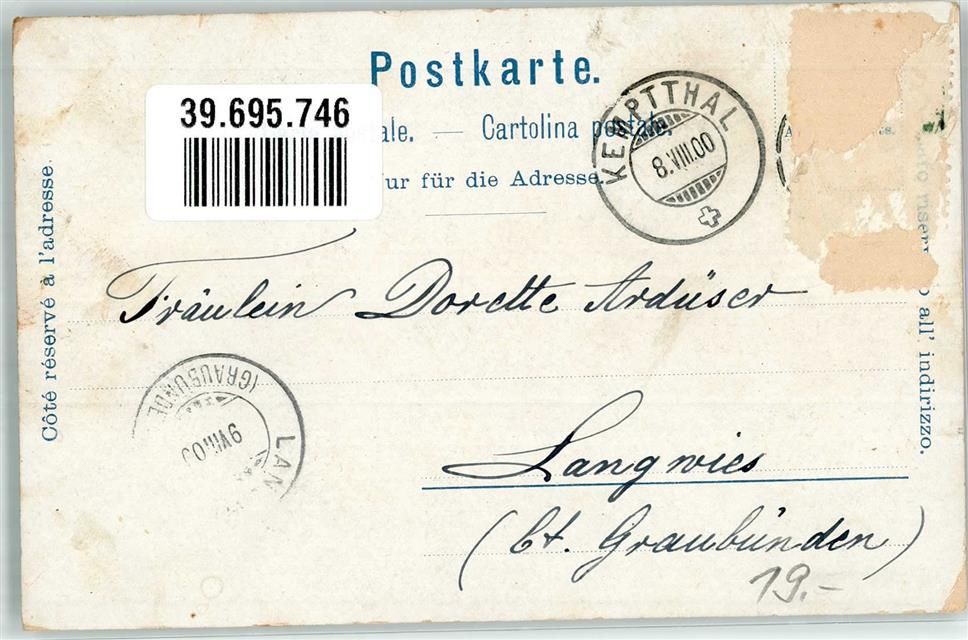 Postkarte.
39.695.746
ale. — Cartolina postale.
Nur für die Adresse.
KEMPTTHAL
8.VIII.00
Côté réservé à l'adresse.
all' indirizzo.
Fräulein Dorette Ardüser
(GRAUBÜNDE
LAN
9.VIII.00
Langwies
(Ct. Graubünden)
19.-